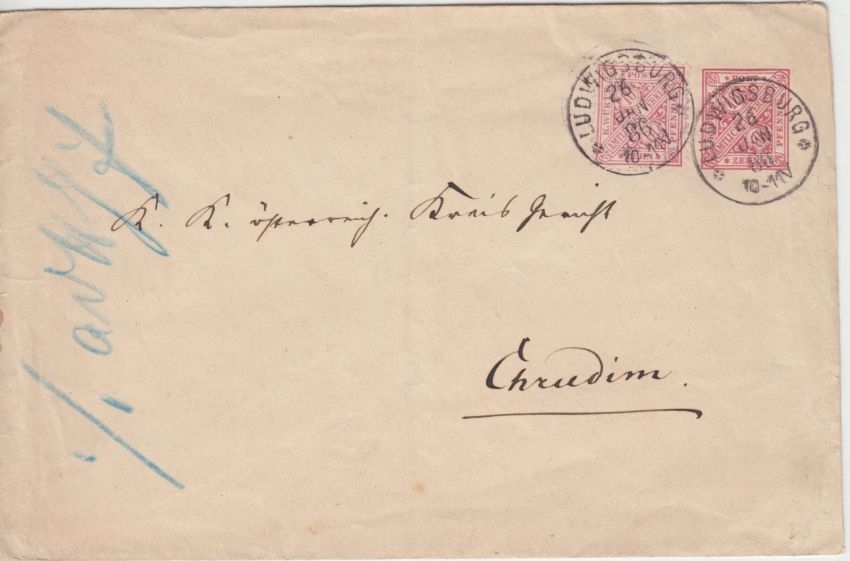 LUDWIGSBURG
26
JAN
86
10-11V
LUDWIGSBURG
26
JAN
86
10-11V
K. K. österreich. Kreis Gericht
Chrudim.